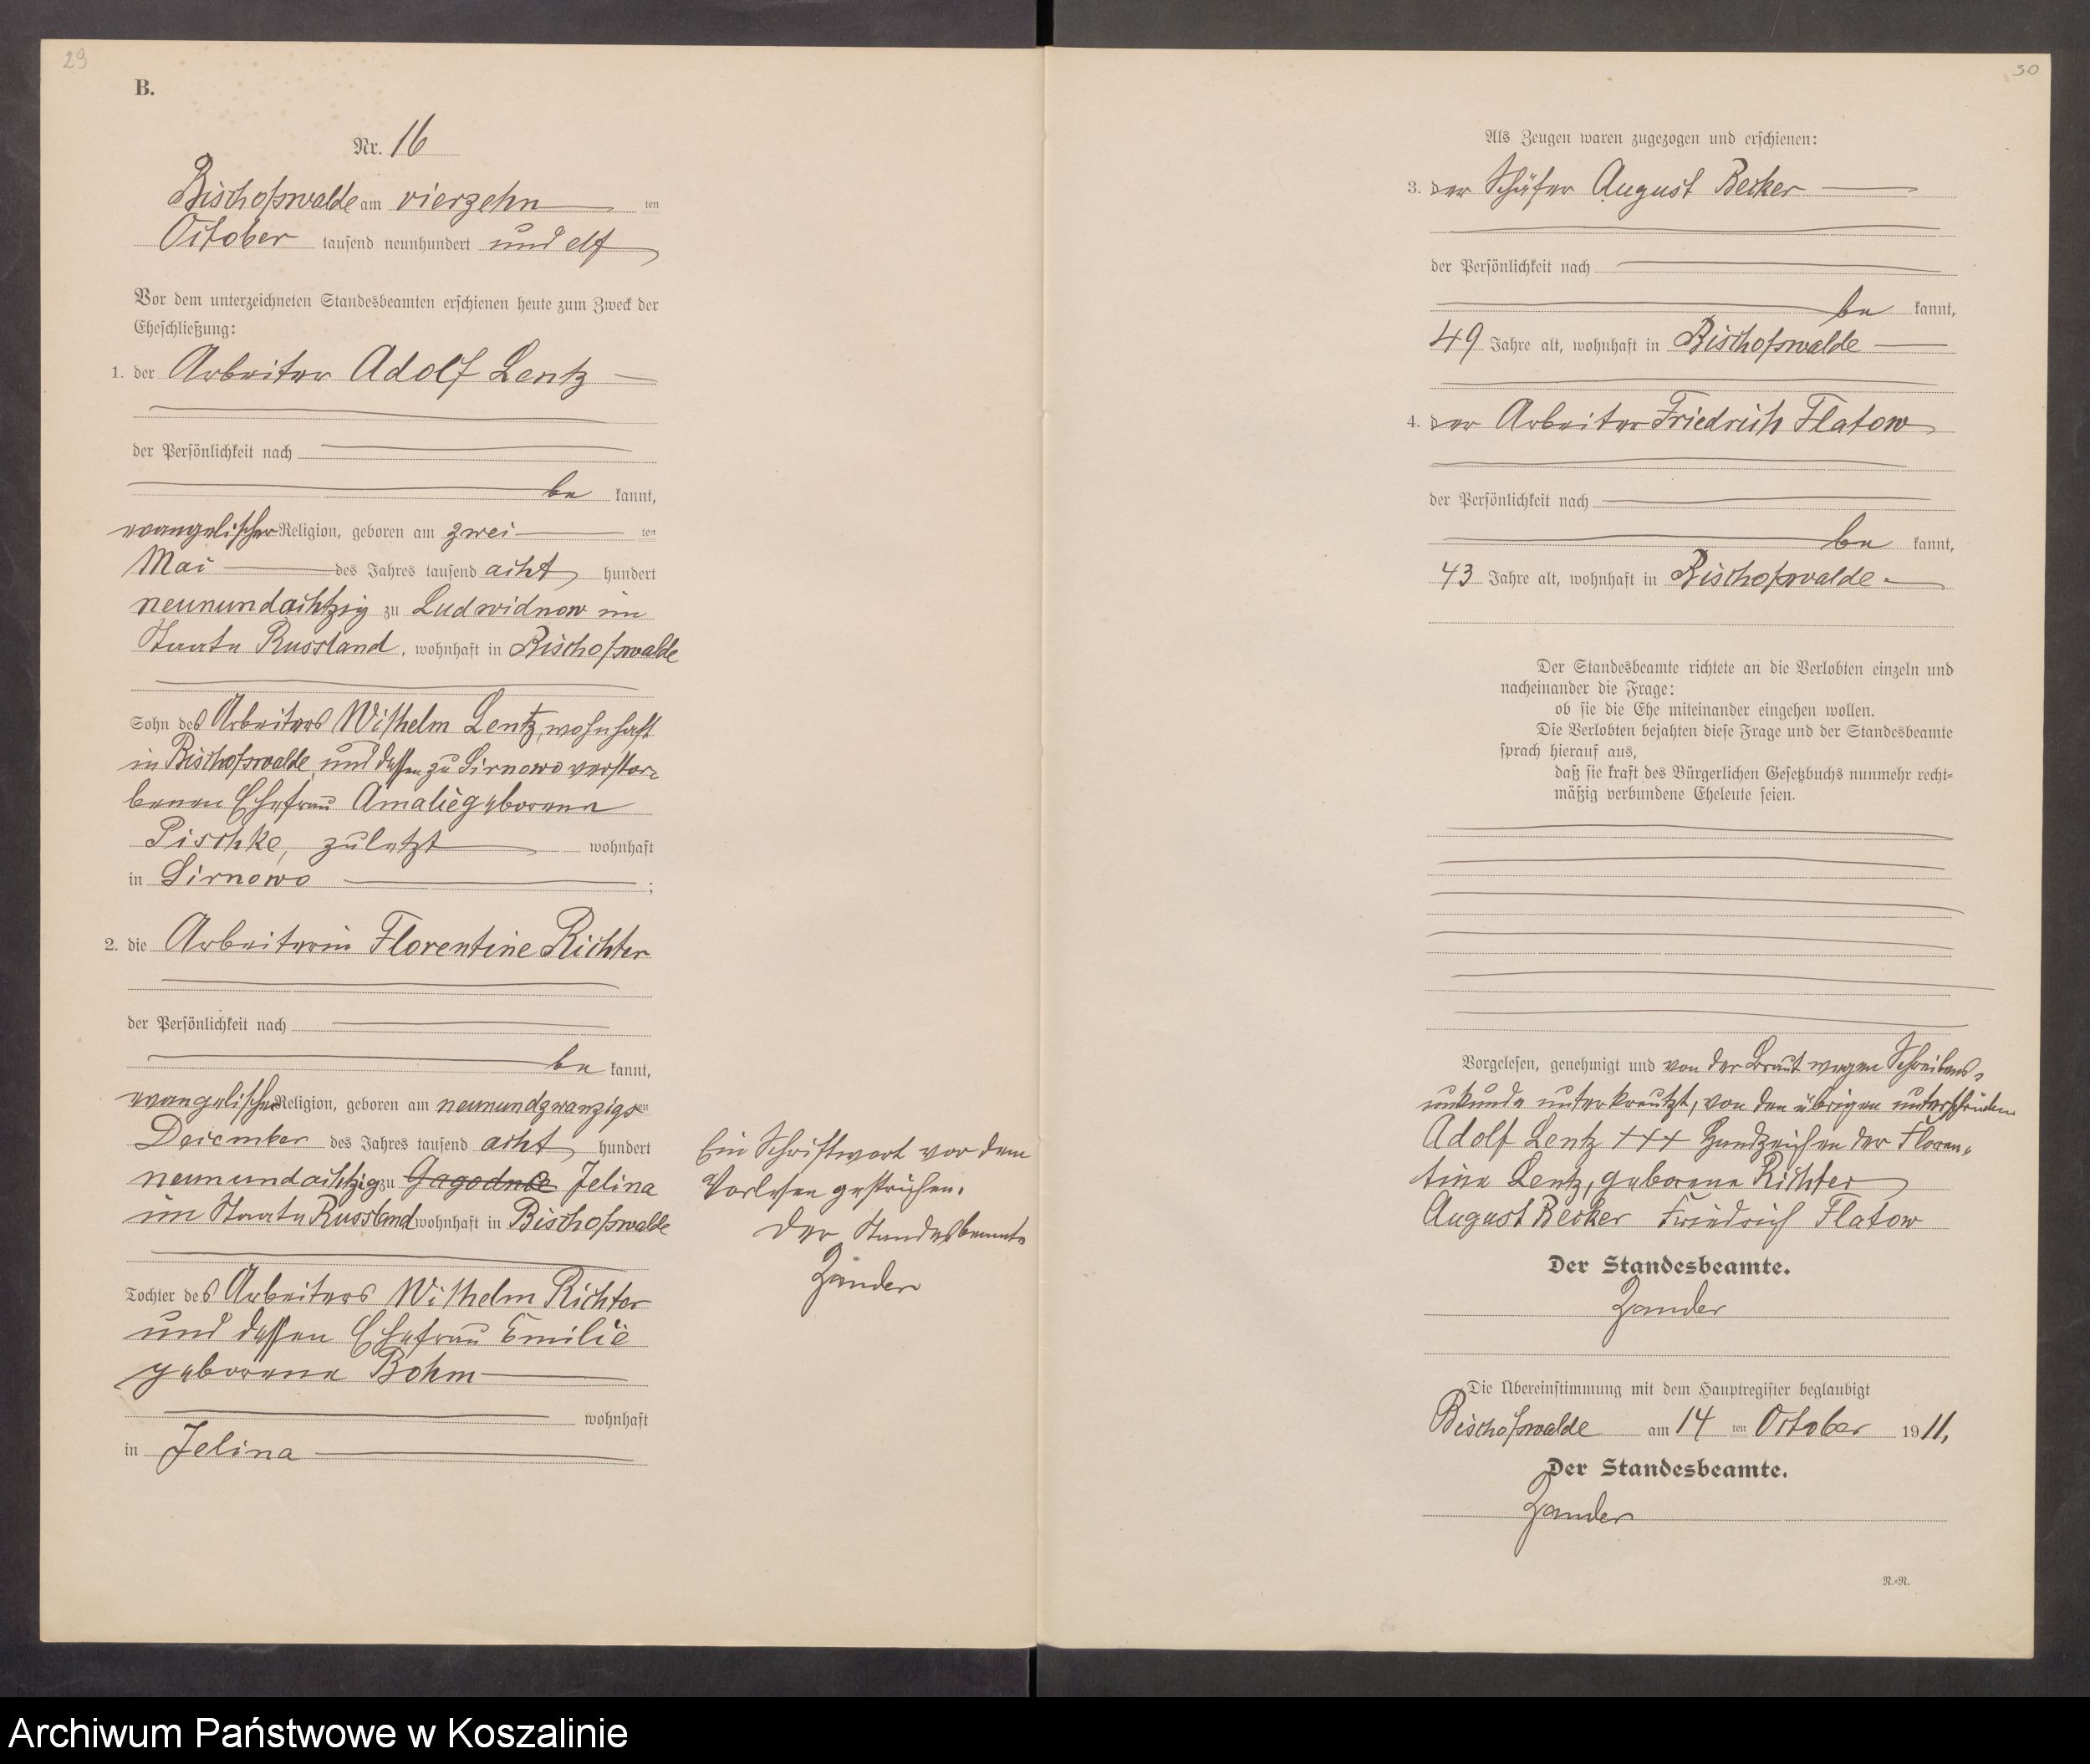 29
B.
Nr. 16
Bischofswalde am vierzehn ten
October tausend neunhundert und elf
Vor dem unterzeichneten Standesbeamten erschienen heute zum Zweck der
Eheschließung:
1. der Arbeiter Adolf Lentz
der Persönlichkeit nach
be kannt,
evangelischer Religion, geboren am zwei ten
Mai des Jahres tausend acht hundert
neunundachtzig zu Ludwidnow im
Staate Russland, wohnhaft in Bischofswalde
Sohn des Arbeiters Wilhelm Lentz, wohnhaft
in Bischofswalde und dessen zu Sirnowo verstor-
benen Ehefrau Amalie geborene
Pischke, zuletzt wohnhaft
in Sirnowo ;
2. die Arbeiterin Florentine Richter
der Persönlichkeit nach
be kannt,
evangelischer Religion, geboren am neunundzwanzigsten
December des Jahres tausend acht hundert
neunundachtzig zu Jelina
im Staate Russland wohnhaft in Bischofswalde
Tochter des Arbeiters Wilhelm Richter
und dessen Ehefrau Emilie
geborene Bohm
wohnhaft
in Jelina
Ein Schriftwort vor dem
Vorlesen gestrichen.
Der Standesbeamte
Zander
30
Als Zeugen waren zugezogen und erschienen:
3. der Schäfer August Becker
der Persönlichkeit nach
be kannt,
49 Jahre alt, wohnhaft in Bischofswalde
4. der Arbeiter Friedrich Flatow
der Persönlichkeit nach
be kannt,
43 Jahre alt, wohnhaft in Bischofswalde
Der Standesbeamte richtete an die Verlobten einzeln und
nacheinander die Frage:
ob sie die Ehe miteinander eingehen wollen.
Die Verlobten bejahten diese Frage und der Standesbeamte
sprach hierauf aus,
daß sie kraft des Bürgerlichen Gesetzbuchs nunmehr recht-
mäßig verbundene Eheleute seien.
Vorgelesen, genehmigt und von der Braut wegen Schreibens-
unkunde unterkreutzt, von den übrigen unterschrieben
Adolf Lentz +++ Handzeichen der Floren-
tine Lentz, geborene Richter
August Becker Friedrich Flatow
Der Standesbeamte.
Zander
Die Übereinstimmung mit dem Hauptregister beglaubigt
Bischofswalde am 14 ten October 1911.
Der Standesbeamte.
Zander
N.-N.
Archiwum Państwowe w Koszalinie